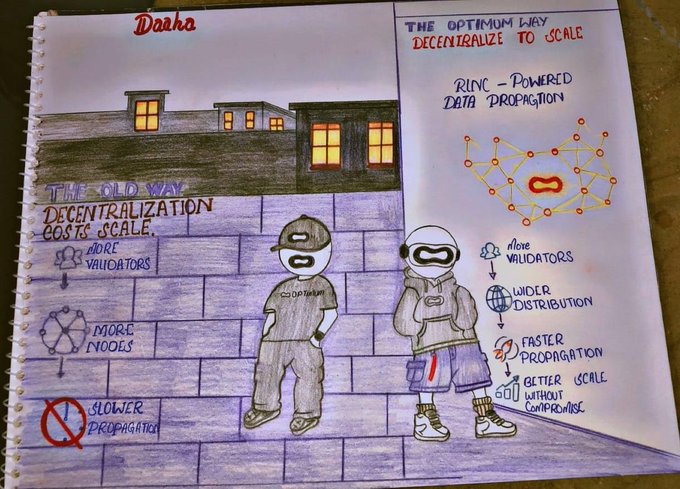 Daaha
THE OLD WAY
DECENTRALIZATION
COSTS SCALE.
MORE
VALIDATORS
MORE
NODES
SLOWER
PROPAGATION
OPTIMUM
THE OPTIMUM WAY
DECENTRALIZE TO SCALE
RLNC - POWERED
DATA PROPAGTION
More
VALIDATORS
WIDER
DISTRIBUTION
FASTER
PROPAGATION
BETTER SCALE
WITHOUT
COMPROMISE